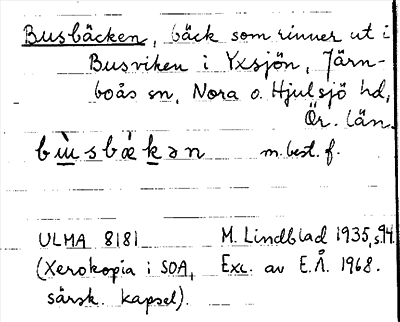 Busbäcken, bäck som rinner ut i
Busviken i Yxsjön, Järn-
boås sn, Nora o. Hjulsjö hd,
Ör. län.
bùsbäkən m. best. f.
ULMA 8181 M. Lindblad 1935, s. 94.
(Xerokopia i SOA, Exc. av E.Å. 1968.
särsk. kapsel).